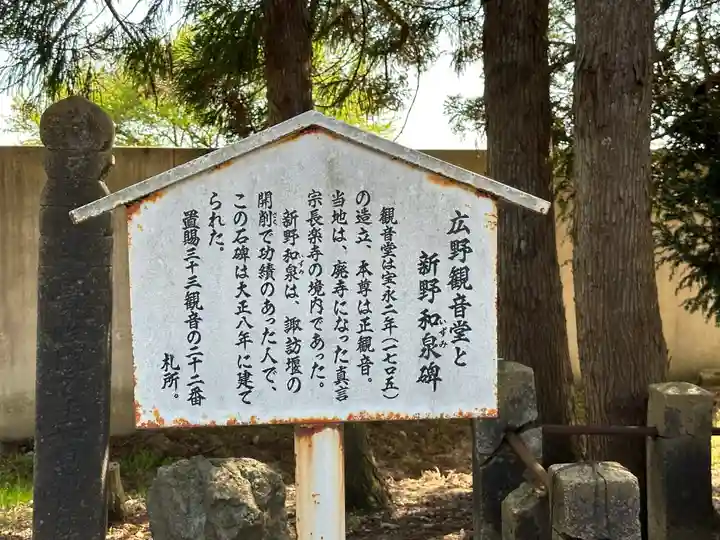 広野観音堂と
新野和泉碑
いずみ
観音堂は宝永二年(一七〇五)
の造立、本尊は正観音。
当地は、廃寺になった真言
宗長楽寺の境内であった。
新野和泉は、諏訪堰の
いずみ
開削で功績のあった人で、
この石碑は大正八年に建て
られた。
置賜三十三観音の二十二番
札所。